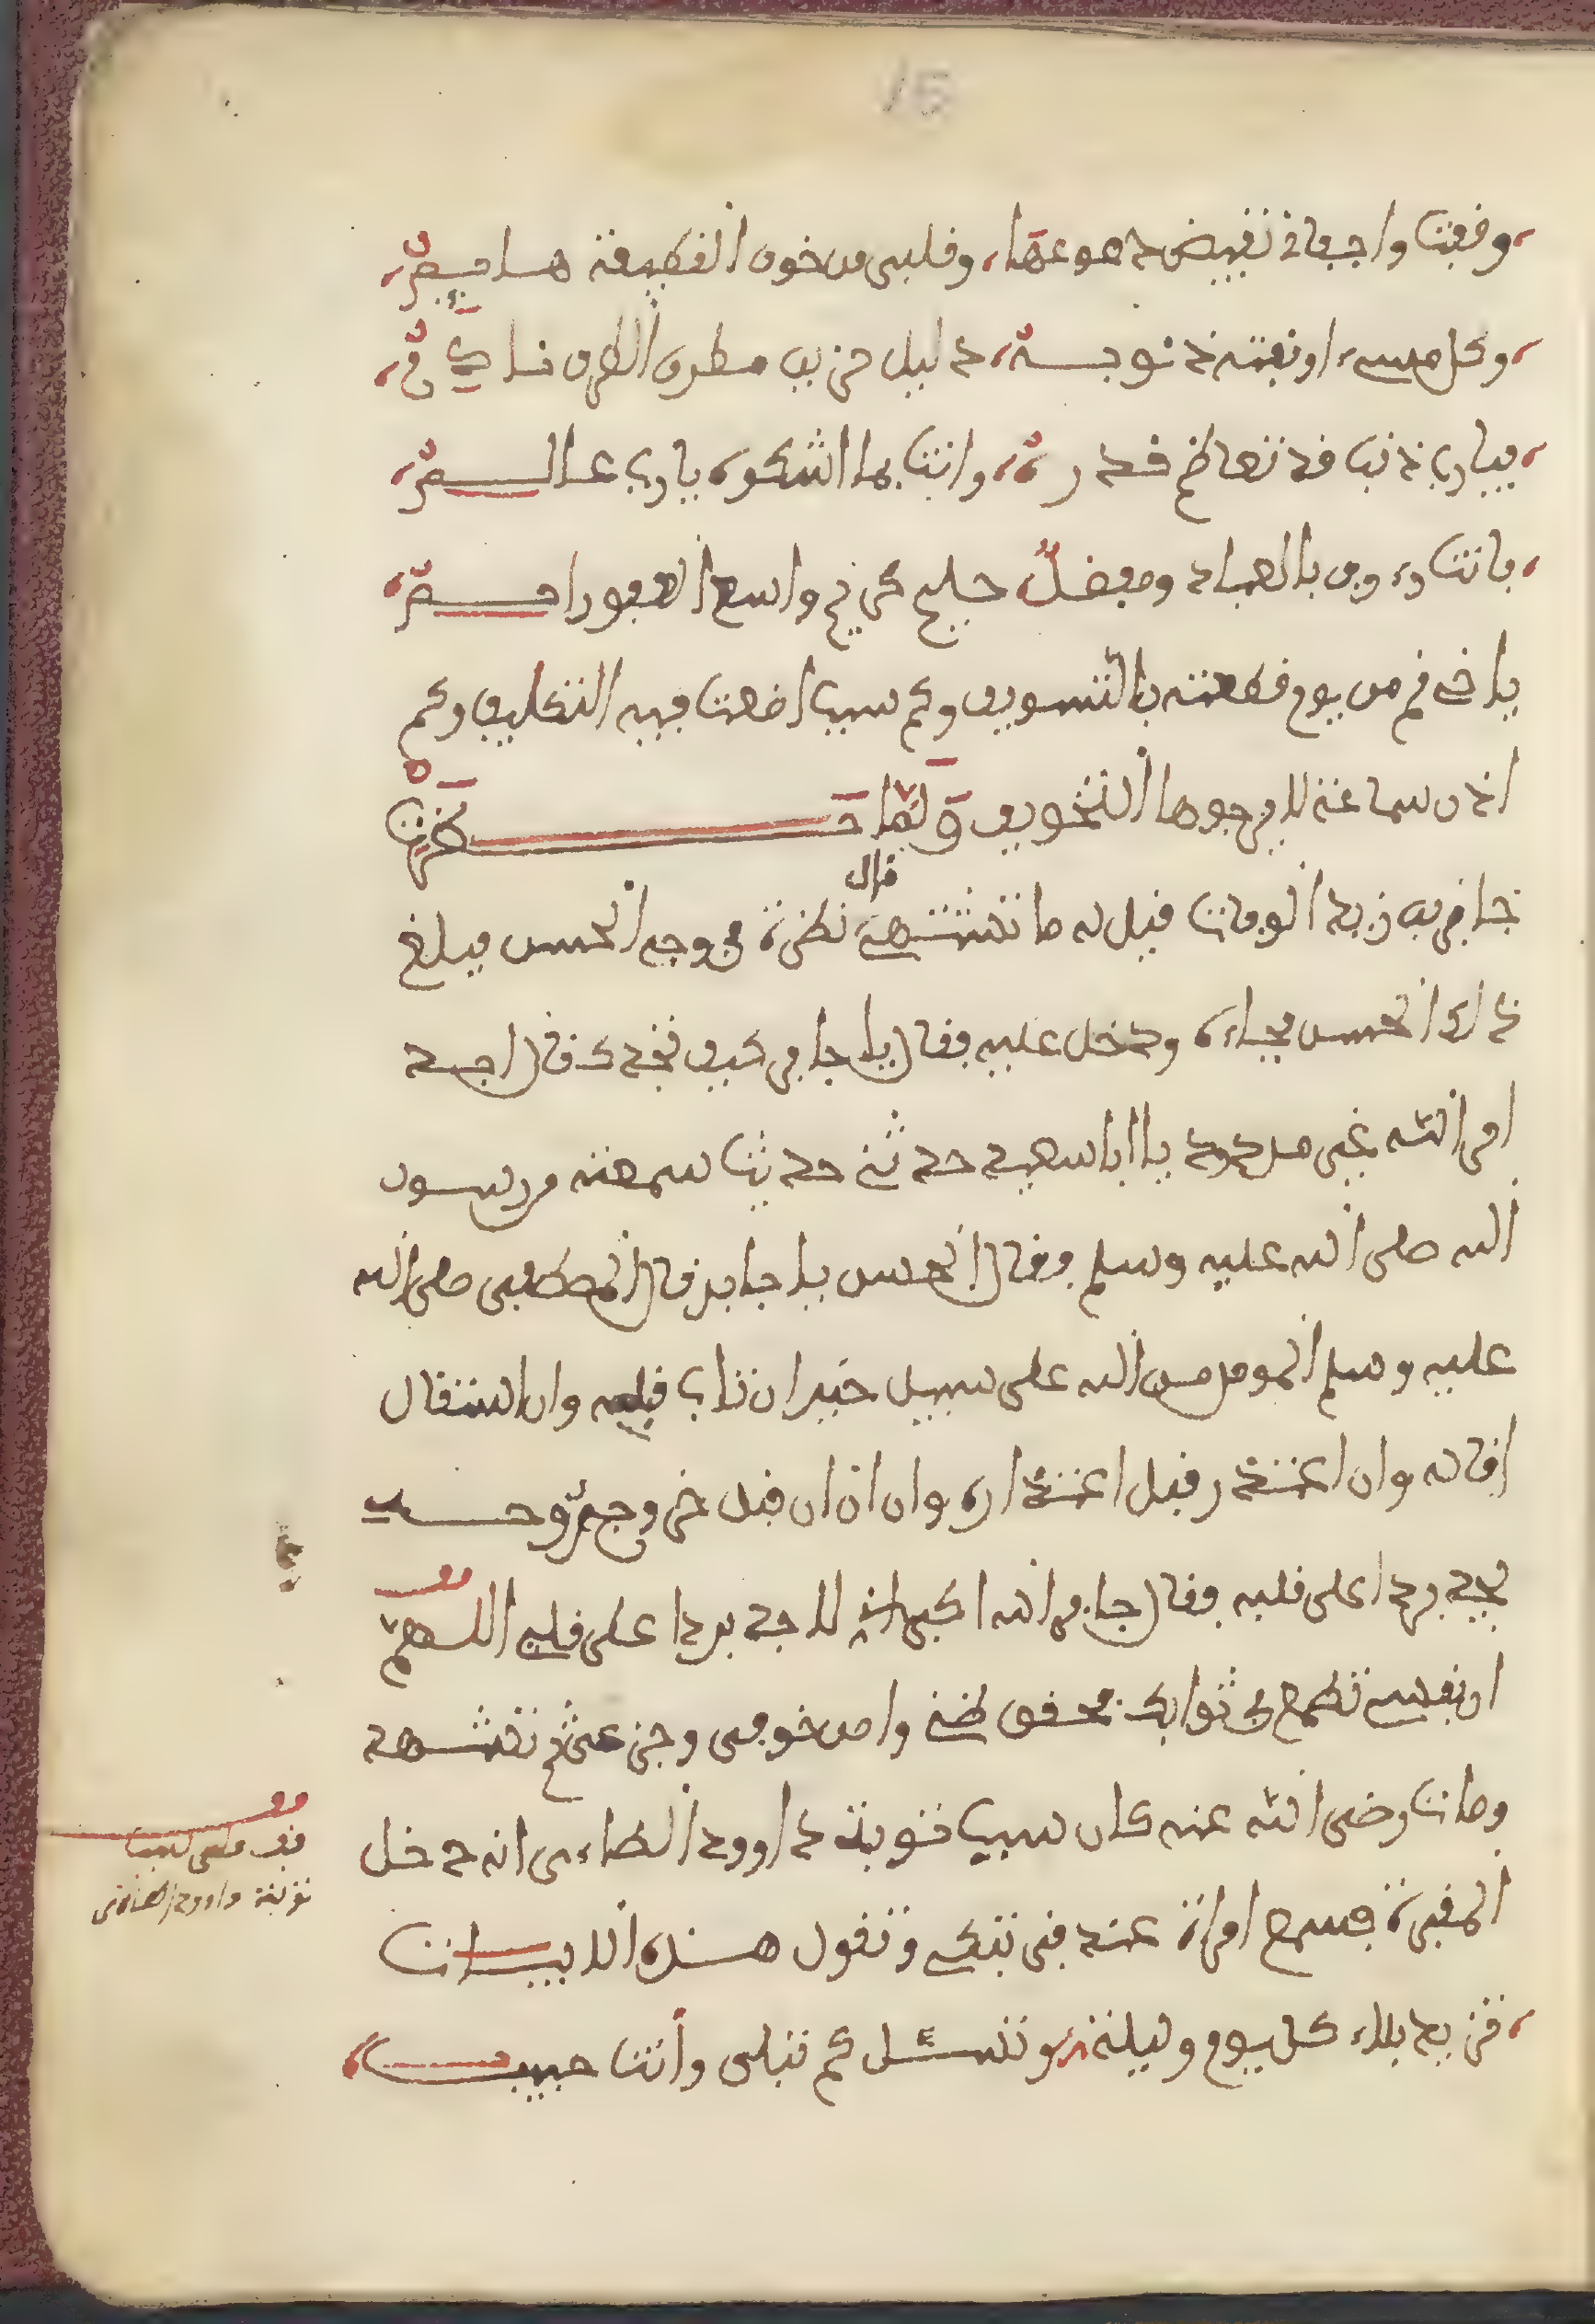 15
وفقت واجفان تفيض دموعها وقلبي من خوف القطيعة هايم
وكل مسيء اوبقته ذنوبه ذليل حزين مطرق الطرف نادم
فيارب ذنبي قد تعاظم قدره وانت بما اشكوه يارب عالم
فانت رءوف بالعباد ومفضل حليم كريم واسع العفو راحم
يا اخي كم من يوم قطعته بالتسويف وكم سبب اضعت فيه التكليف وكم
اذن سماعة لا يزجرها التخويف ولما حضرت
جابر بن زيد الوفات قيل له ما تشتهي قال نظرة في وجه الحسن فبلغ
ذلك الحسن فجاءه ودخل عليه فقال يا جابر كيف تجدك قال اجد
امر الله غير مردود يا ابا سعيد حدثني حديثا سمعته من رسول
الله صلى الله عليه وسلم فقال الحسن يا جابر قال المصطفى صلى الله
عليه وسلم المومن من الله على سبيل خير ان تاب قبله وان استقال
اقاله وان اعتذر قبل اعتذاره وان اذان قبل خروج روحه
يجد بردا على قلبه فقال جابر الله اكبر اني لاجد بردا على قلبي اللهم
ان نفسي تطمع في ثوابك فحقق ظني وامن خوفي وجزعي ثم تشهد
ومات رضي الله عنه كان سبب توبة داوود الطاءي انه دخل
المقبرة فسمع امراة عند قبر تبكي وتقول هذه الابيات
تزيد بلاء كل يوم وليلة وتسئل كم تبلى وأنت حبيب
قف على سبب
توبة داوود الطاءي